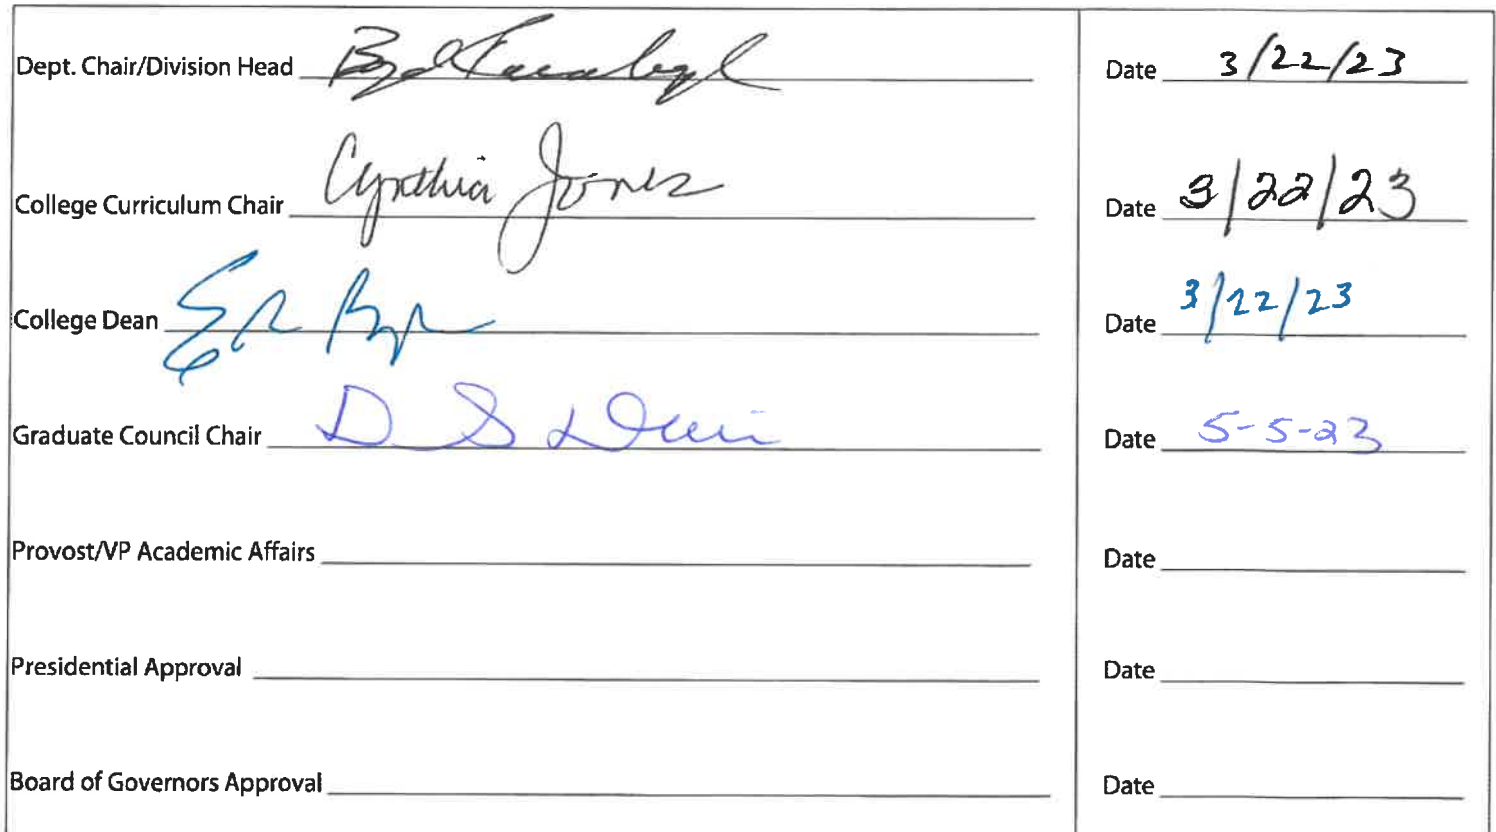 Dept. Chair/Division Head Date 3/22/23
College Curriculum Chair Cynthia Jones Date 3/22/23
College Dean Date 3/22/23
Graduate Council Chair D S Date 5-5-23
Provost/VP Academic Affairs Date
Presidential Approval Date
Board of Governors Approval Date